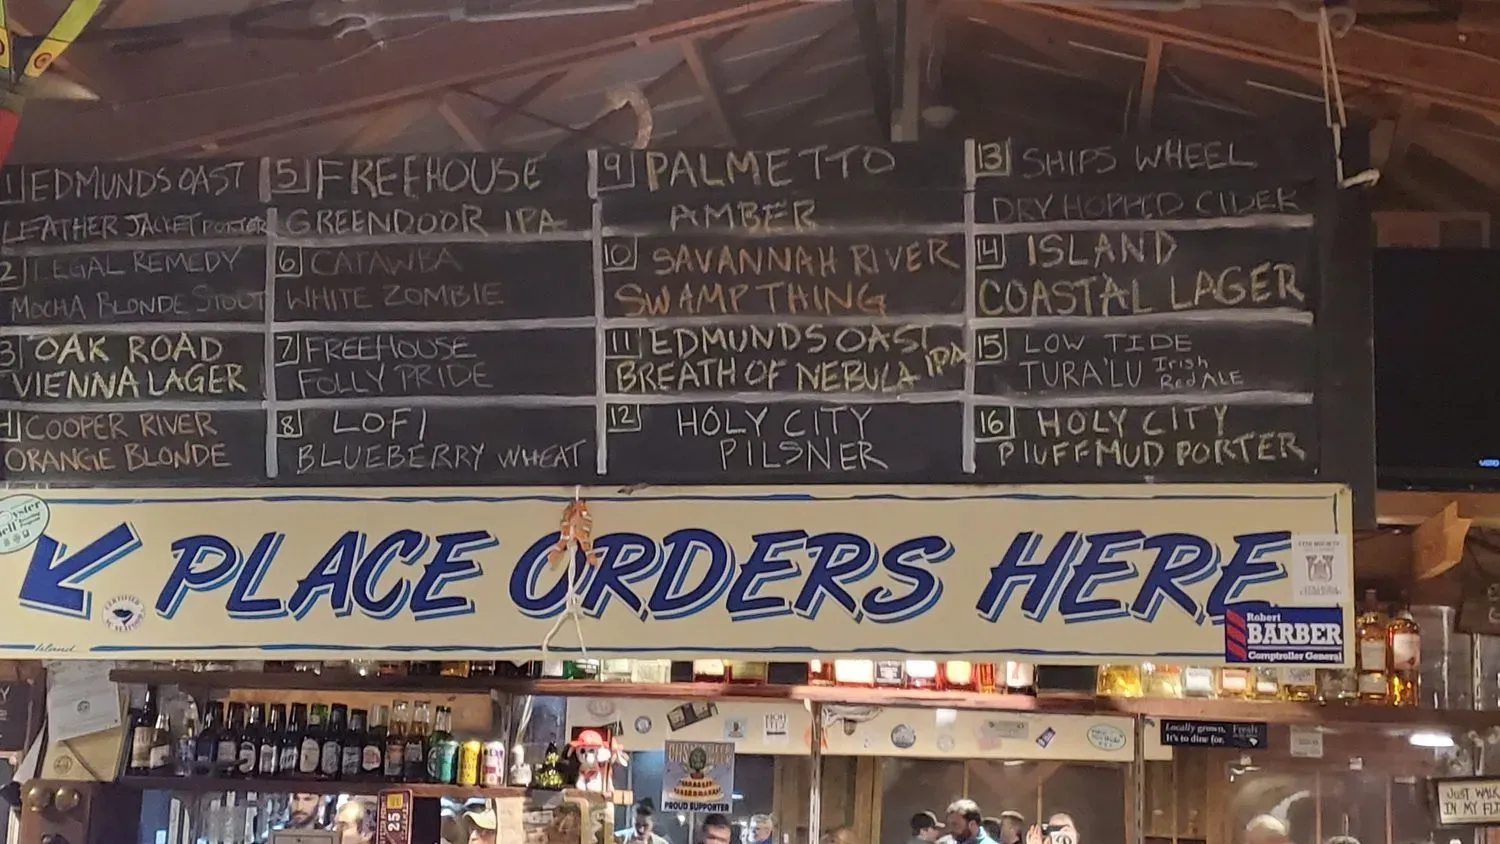 1 EDMUNDS OAST
LEATHER JACKET PORTER
2 LEGAL REMEDY
MOCHA BLONDE STOUT
3 OAK ROAD
VIENNA LAGER
COOPER RIVER
ORANGE BLONDE
5 FREEHOUSE
GREENDOOR IPA
6 CATAWBA
WHITE ZOMBIE
7 FREEHOUSE
FOLLY PRIDE
8 LOFI
BLUEBERRY WHEAT
9 PALMETTO
AMBER
10 SAVANNAH RIVER
SWAMP THING
11 EDMUNDS OAST
BREATH OF NEBULA IPA
12 HOLY CITY
PILSNER
13 SHIPS WHEEL
DRY HOPPED CIDER
14 ISLAND
COASTAL LAGER
15 LOW TIDE
TURA'LU Irish
Red ALE
16 HOLY CITY
PLUFFMUD PORTER
PLACE ORDERS HERE
CERTIFIED
Island
Robert
BARBER
Comptroller General
Locally grown. Fresh
It's to dine for.
PROUD SUPPORTER
25
JUST WALK
IN MY FLI